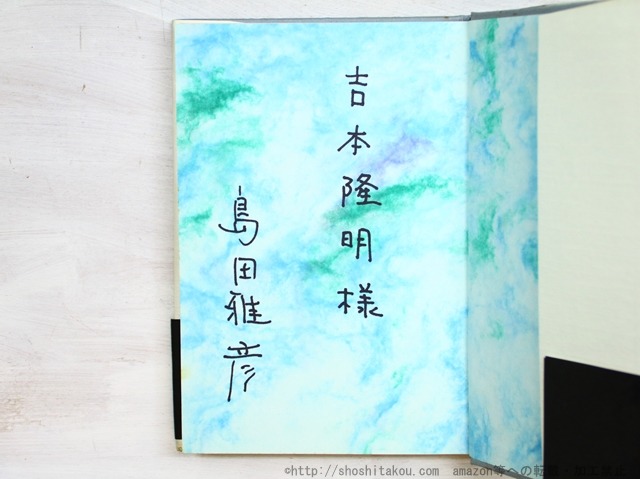 吉本隆明様
島田雅彦
©http://shoshitakou.com amazon等への転載・加工禁止